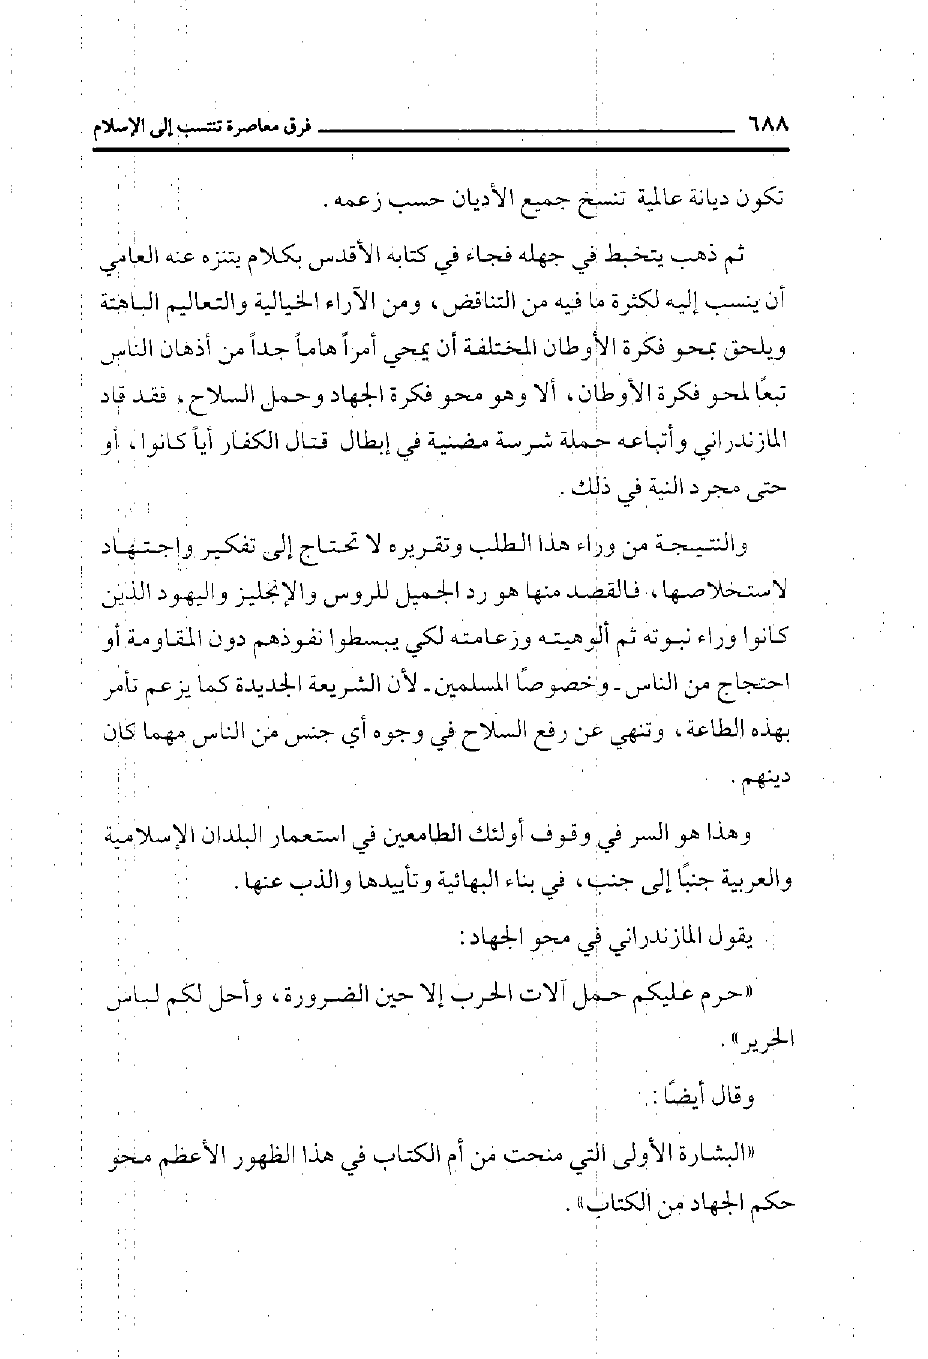 ٦٨٨ فرق معاصرة تنتسب إلى الإسلام
تكون ديانة عالمية تنسخ جميع الأديان حسب زعمه .
ثم ذهب يتخبط في جهله فجاء في كتابه الأقدس بكلام يتنزه عنه العامي
أن ينسب إليه لكثرة ما فيه من التناقض، ومن الآراء الخيالية والتعاليم الباهتة
ويلحق بمحو فكرة الأوطان المختلفة أن يمحي أمراً هاماً جداً من أذهان الناس
تبعًا لمحو فكرة الأوطان، ألا وهو محو فكرة الجهاد وحمل السلاح، فقد قاد
المازندراني وأتباعه حملة شرسة مضنية في إبطال قتال الكفار أياً كانوا، أو
حتى مجرد النية في ذلك .
والنتيجة من وراء هذا الطلب وتقريره لا تحتاج إلى تفكير واجتهاد
لاستخلاصها، فالقصد منها هو رد الجميل للروس والإنجليز واليهود الذين
كانوا وراء نبوته ثم ألوهيته وزعامته لكي يبسطوا نفوذهم دون المقاومة أو
احتجاج من الناس ـ وخصوصًا المسلمين ـ لأن الشريعة الجديدة كما يزعم تأمر
بهذه الطاعة، وتنهي عن رفع السلاح في وجوه أي جنس من الناس مهما كان
دينهم .
وهذا هو السر في وقوف أولئك الطامعين في استعمار البلدان الإسلامية
والعربية جنبًا إلى جنب، في بناء البهائية وتأييدها والذب عنها .
يقول المازندراني في محو الجهاد:
«حرم عليكم حمل آلات الحرب إلا حين الضرورة، وأحل لكم لباس
الحرير» .
وقال أيضًا :
«البشارة الأولى التي منحت من أم الكتاب في هذا الظهور الأعظم محو
حكم الجهاد من الكتاب» .